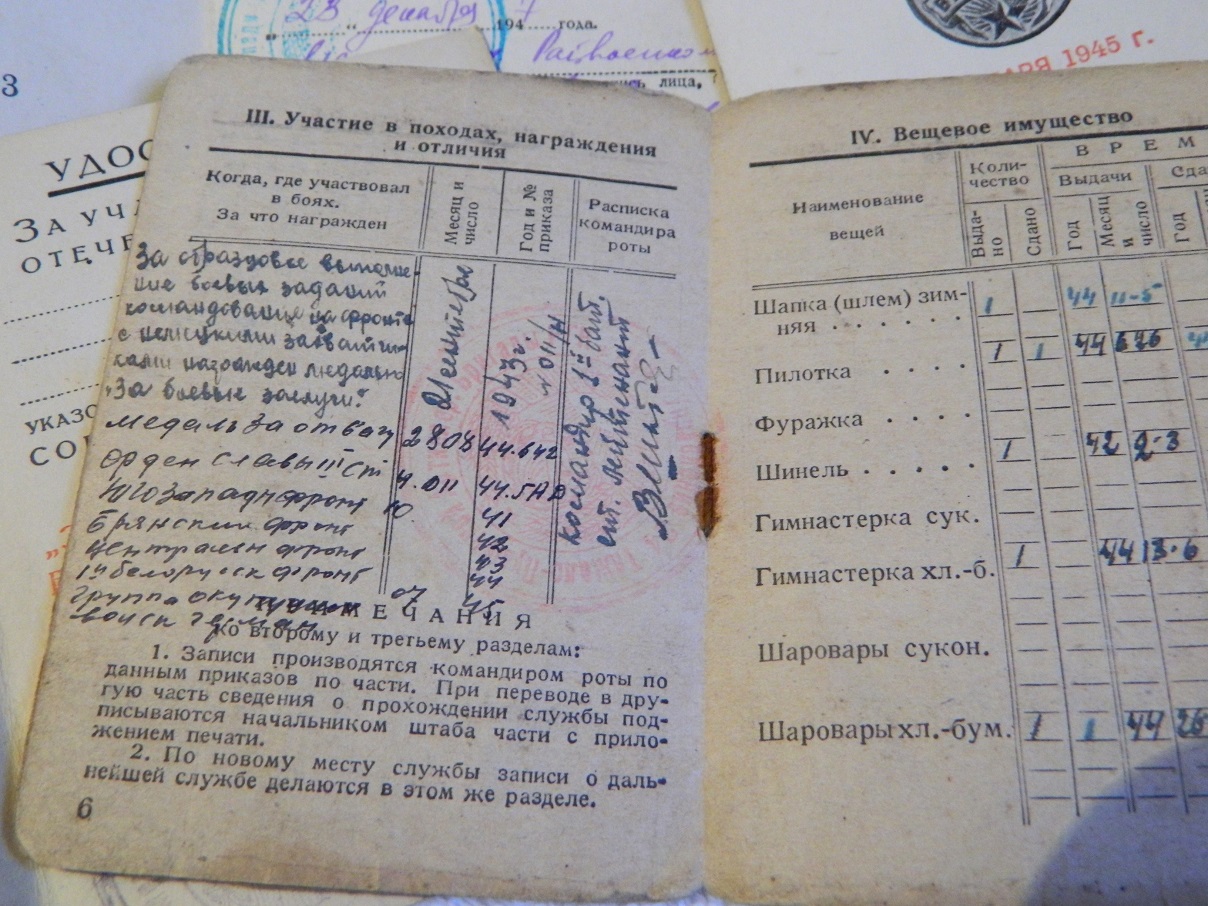 23 декабря 1947 года.
Райвоенком
лица,
1945 г.
3
УДОС
ЗА УЧА
ОТЕЧЕ
УКАЗО
СО
III. Участие в походах, награждения
и отличия
Когда, где участвовал
в боях.
За что награжден
Месяц и
число
Год и №
приказа
Расписка
командира
роты
За образцовое выполне-
ние боевых заданий
командования на фронте
с немецкими захватчи-
ками награжден медалью
"За боевые заслуги".
21 сентября
1943 г.
№ 011/н
командир 1й бат.
ст. лейтенант
медаль За отвагу 28 08 44. 642
Орден славы III ст 4. 011 44. ГАД
Юго западн фронт 10 41
Брянский фронт 42
Централен фронт 43
1й белорусск фронт 44
группа окупацион 07 45
войск герман
ПРИМЕЧАНИЯ
ко второму и третьему разделам:
1. Записи производятся командиром роты по
данным приказов по части. При переводе в дру-
гую часть сведения о прохождении службы под-
писываются начальником штаба части с прило-
жением печати.
2. По новому месту службы записи о даль-
нейшей службе делаются в этом же разделе.
6
IV. Вещевое имущество
Наименование
вещей
Коли-
чество
ВРЕМ
Выдачи
Сда
Выда-
но
Сдано
Год
Месяц
и
число
Год
Шапка (шлем) зим-
няя . . . . . . 1 44 11-5
Пилотка . . . . 1 1 44 6 26
Фуражка . . . .
Шинель . . . . . 1 42 2-3
Гимнастерка сук.
Гимнастерка хл.-б. 1 44 13.6
Шаровары сукон.
Шаровары хл.-бум. 1 1 44 26